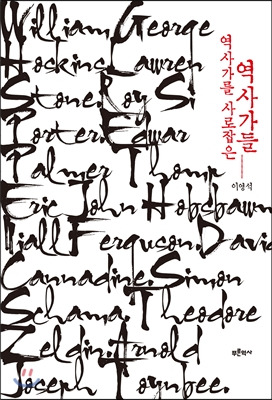 William.George
Hoskins.Lawren
Stone.Roy Si
Porter.Edwar
Palmer Thomp
Eric John Hobsbawn
Niall Ferguson.David
Cannadine.Simon
Schama.Theodore
Zeldin.Arnold
Joseph Toynbee.
역사가를 사로잡은
역사가들
이영석
푸른역사